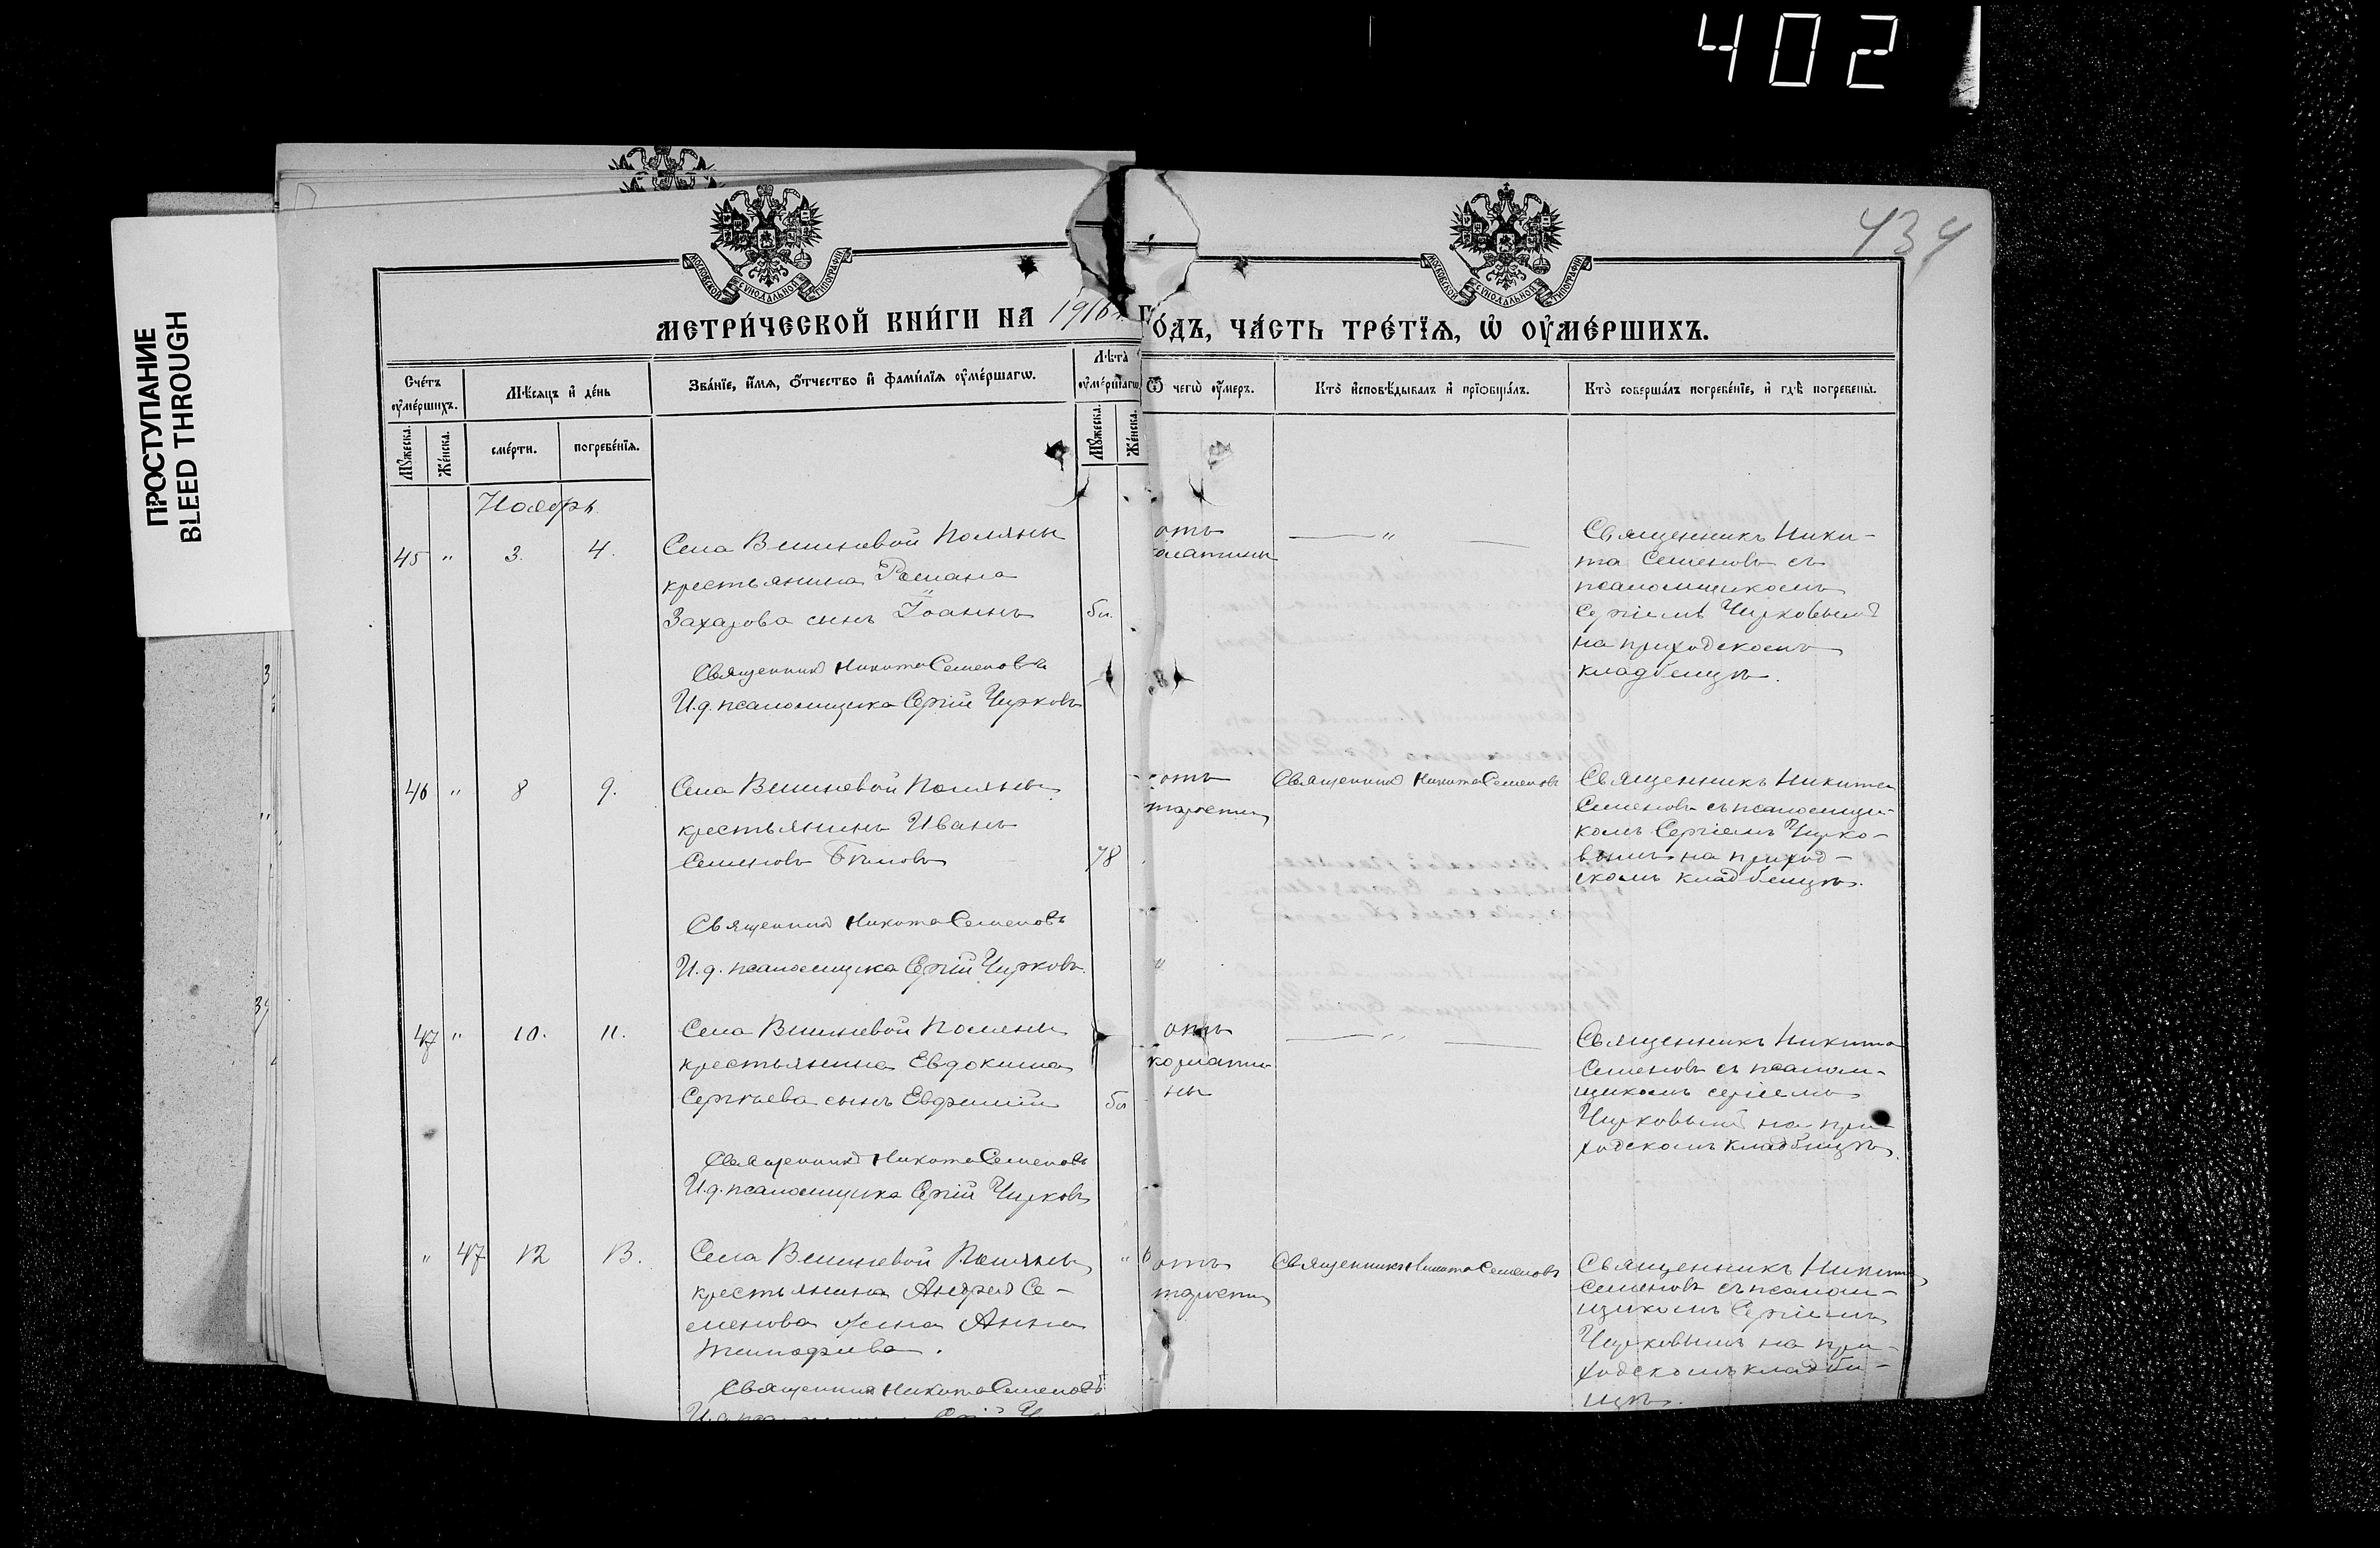 402
ПРОСТУПАНИЕ
BLEED THROUGH
434
МОСКОВСКОЙ СѴНОДАЛЬНОЙ ТИПОГРАФІИ
МОСКОВСКОЙ СѴНОДАЛЬНОЙ ТИПОГРАФІИ
МЕТРИ́ЧЕСКОЙ КНИ́ГИ НА 1916 Го́ДЪ, ЧА́СТЬ ТРЕ́ТЇѦ, Ѡ҆ ОУ҆МЕ́РШИХЪ.
Сче́тъ оу҆ме́ршихъ.
Мѣ́сѧцъ и҆ де́нь
Зва́нїе, и҆́мѧ, ѻ҆́тчество и҆ фами́лїѧ оу҆ме́ршагѡ.
Лѣ́та оу҆ме́ршагѡ
Ѿ чегѡ̀ оу҆́меръ.
Кто̀ и҆сповѣ́дывалъ и҆ прїѡбща́лъ.
Кто̀ соверша́лъ погребе́нїе, и҆ гдѣ̀ погребены̀.
Мꙋ́жеска.
Же́нска.
сме́рти.
погребе́нїѧ.
Мꙋ́жеска.
Же́нска.
Ноябрь
45 " 3. 4.
Села Вишневой Поляны
крестьянина Романа
Захарова сынъ Іоаннъ
Священникъ Никита Семеновъ
И.д. псаломщика Сергій Чирковъ
отъ
— " —
Священникъ Ники-
та Семеновъ съ
псаломщикомъ
Сергіемъ Чирковымъ
на приходскомъ
кладбищѣ.
46 " 8 9.
Села Вишневой Поляны
крестьянинъ Иванъ
Семеновъ
78
Священникъ Никита Семеновъ
И.д. псаломщика Сергій Чирковъ
отъ
тарости
Священникъ Никита Семеновъ
Священникъ Никита
Семеновъ съ псаломщи-
комъ Сергіемъ Чирко-
вымъ на приход-
скомъ кладбищѣ.
47 " 10. 11.
Села Вишневой Поляны
крестьянина Евдокима
Сергѣева сынъ Евфимій
Священникъ Никита Семеновъ
И.д. псаломщика Сергій Чирковъ
отъ
— " —
Священникъ Никита
Семеновъ съ псалом-
щикомъ Сергіемъ
Чирковымъ на при-
ходскомъ кладбищѣ.
" 47 12 13.
Села Вишневой Поляны
крестьянина Андрея Се-
менова жена Анна
Тимофиева.
Священникъ Никита Семеновъ
отъ
тарости
Священникъ Никита Семеновъ
Священникъ Никита
Семеновъ съ псалом-
щикомъ Сергіемъ
Чирковымъ на при-
ходскомъ кладби-
щѣ.